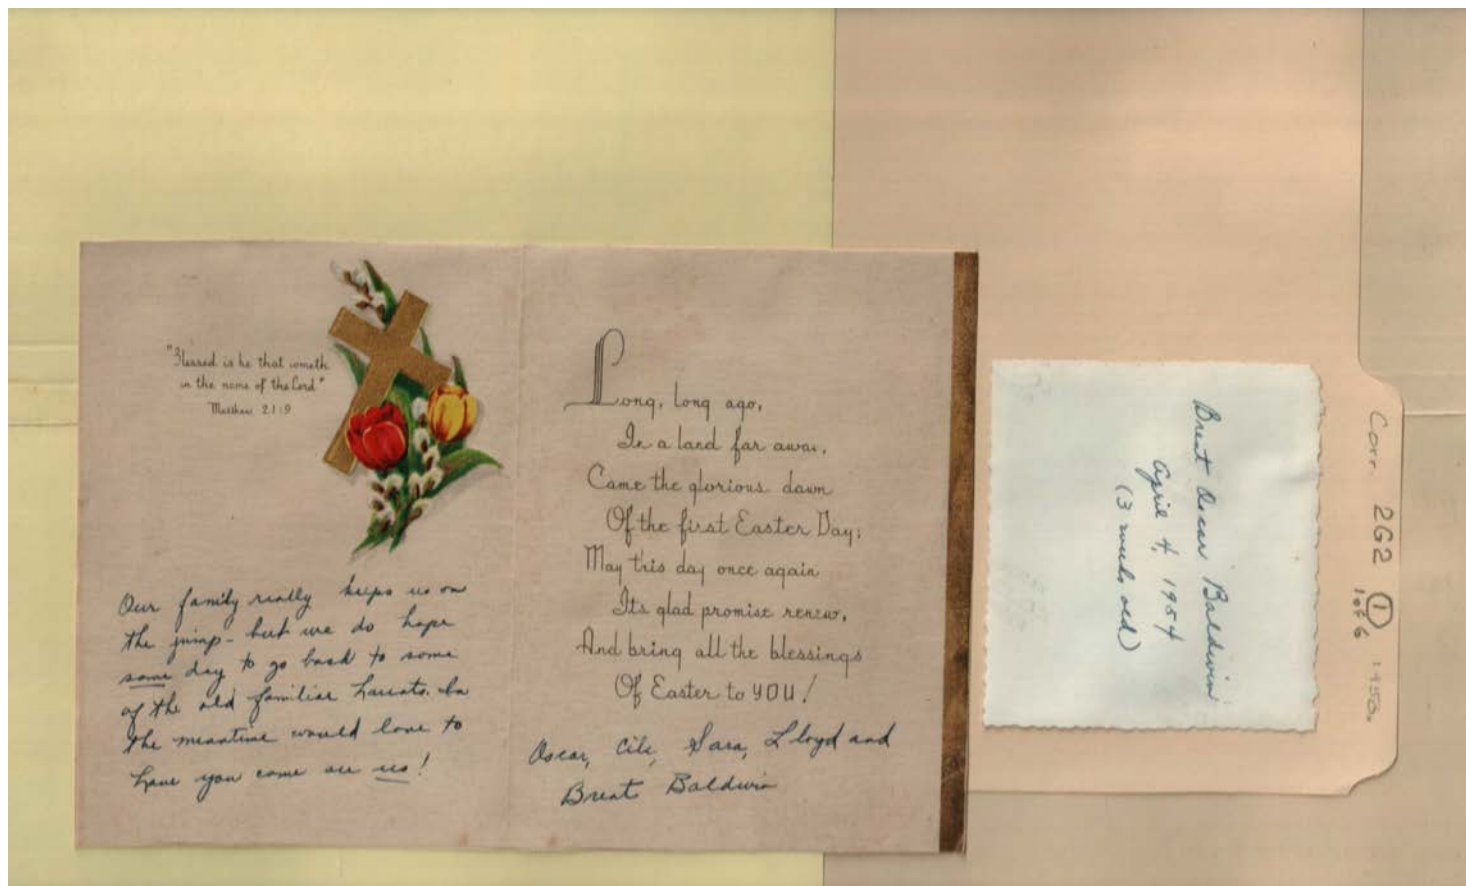 "Blessed is he that cometh
in the name of the Lord"
Matthew 21:9
Our family really keeps us on
the jump - but we do hope
some day to go back to some
of the old familiar haunts. In
the meantime would love to
have you come see us!
Long, long ago,
In a land far away,
Came the glorious dawn
Of the first Easter Day;
May this day once again
Its glad promise renew,
And bring all the blessings
Of Easter to YOU!
Oscar, Cile, Sara, Lloyd and
Brent Baldwin
Brent Oscar Baldwin
April 4, 1954
(3 weeks old)
Corr. 2G2 1 1950s
1 of 6